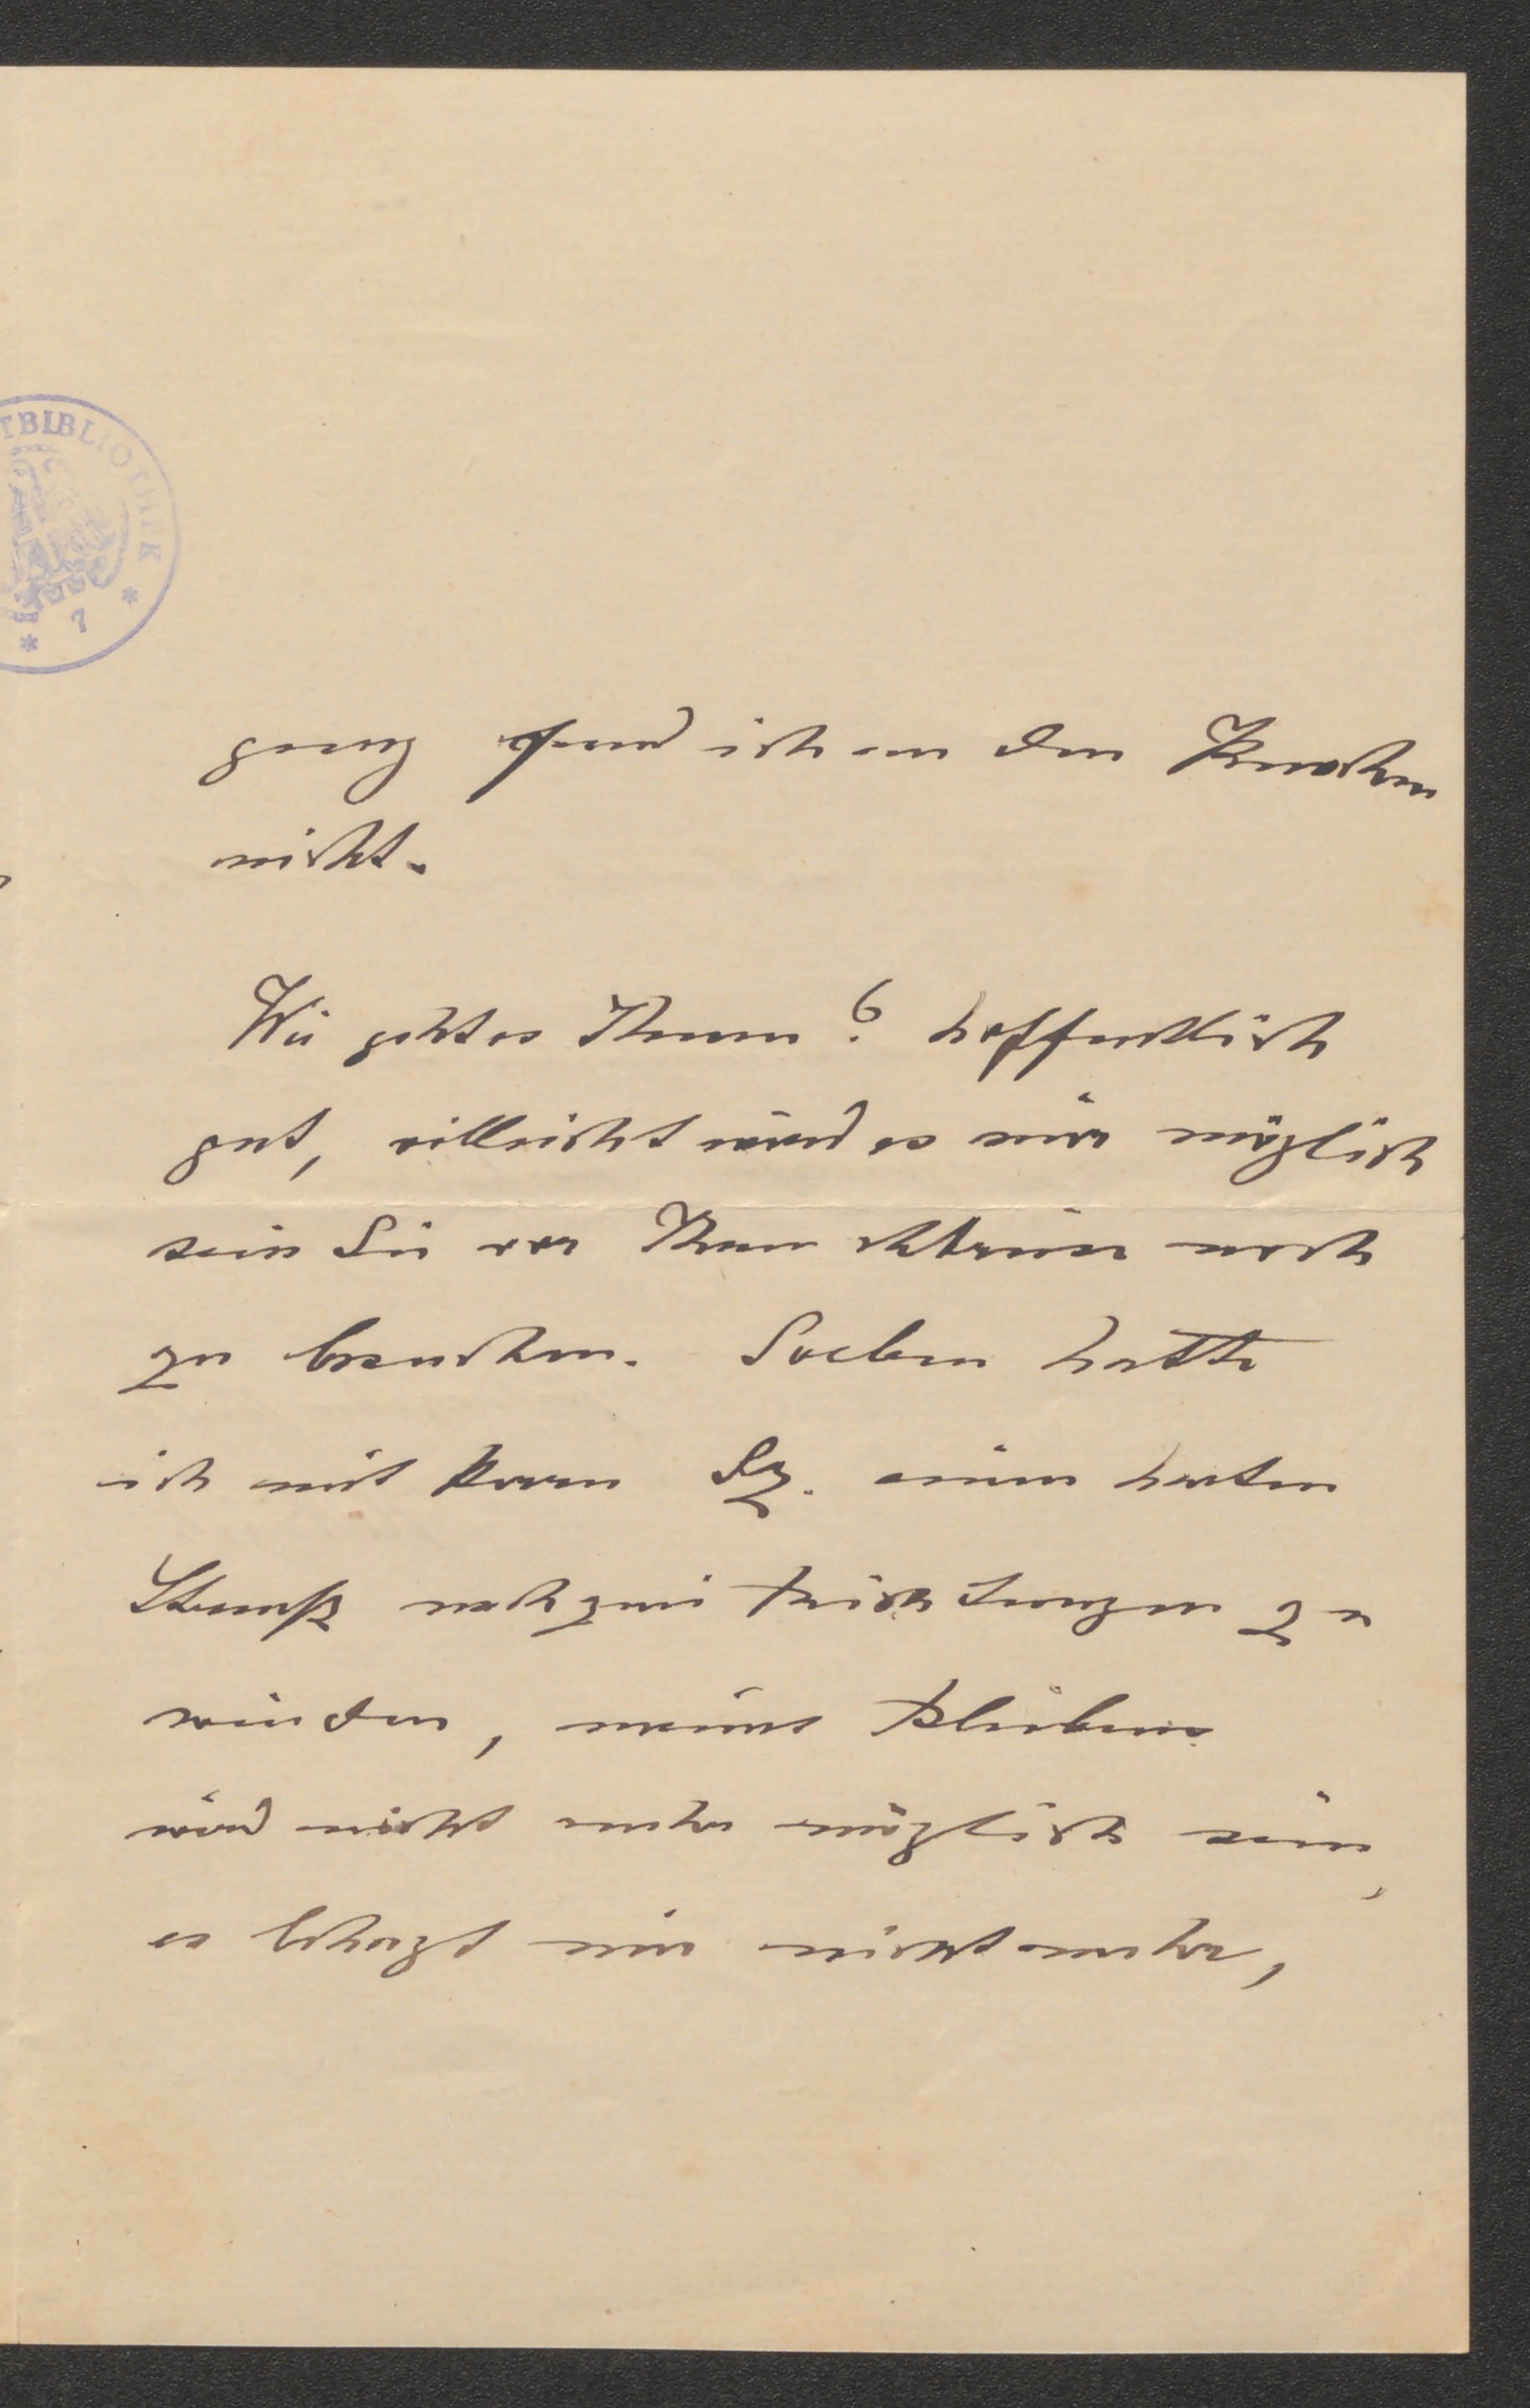 TBIBLIOTHEK
* 7 *
ganz fand ich an den Knochen
nicht.
Wie geht es Ihnen? hoffentlich
gut, villeicht wird es mir möglich
sein Sie vor Ihrer Abreise noch
zu besuchen. Soeben hatte
ich mit Herrn Sz. einen harten
Strauß nach zwei Richtungen zu
winden, meines Bleibens
wird nicht mehr möglich sein,
es behagt mir nicht mehr,